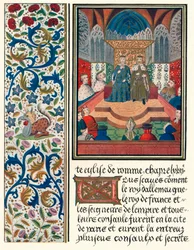 te eglise de romme. chapre
ous scaues coment
le roy dallemaigne
le roy de france et
les seigneurs de lempire et tous
leurs consaulx furent en la cite
de rains et eurent la entreux
plusieurs consaulx et